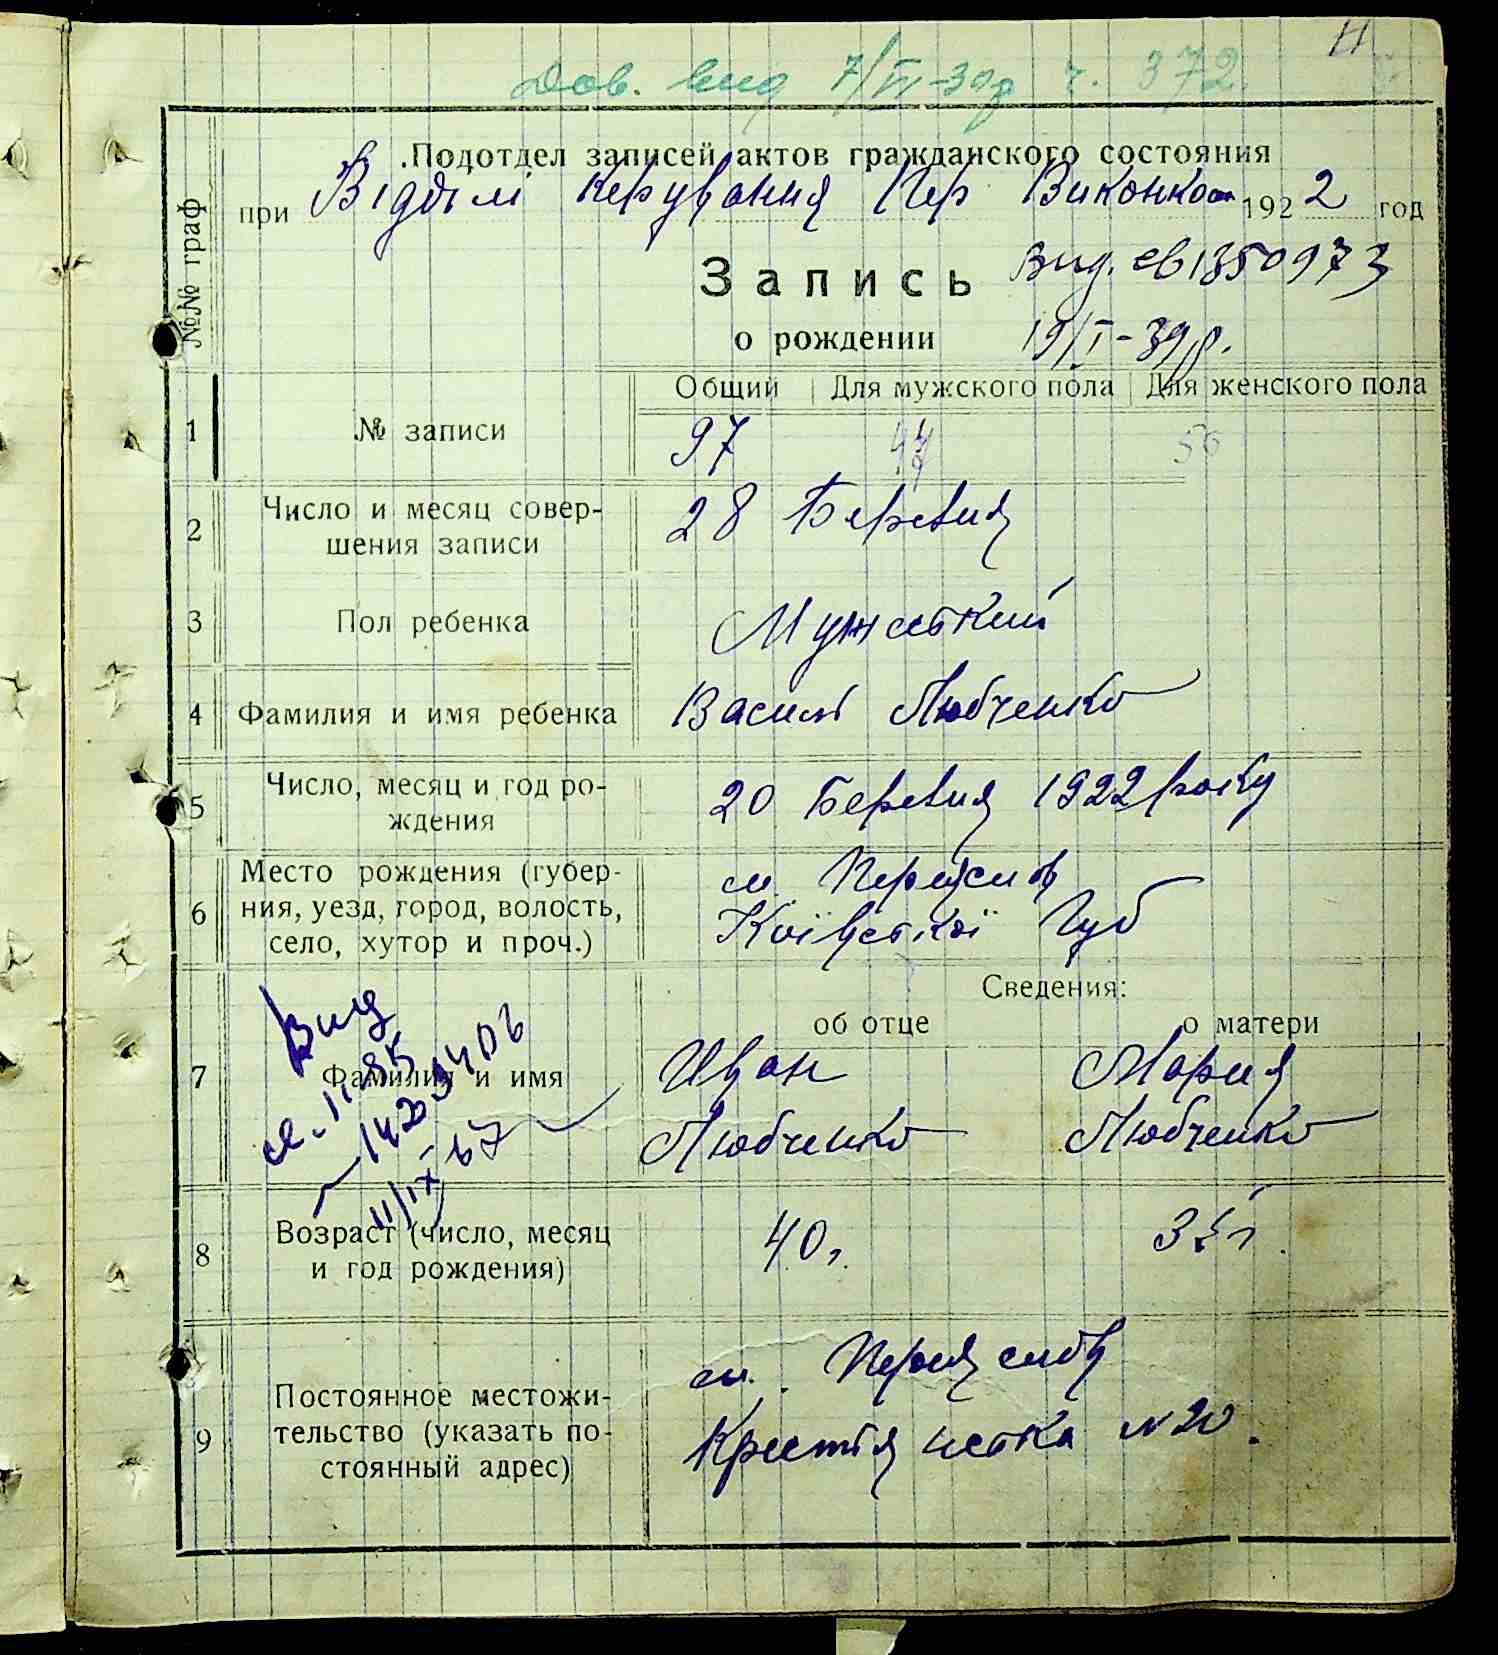 Дов. вид 7/VI-39р ч. 372.
Подотдел записей актов гражданского состояния
при Відділі керування Пер Виконком 1922 год
№№ граф
Запись
Вид. св 1350973
о рождении
19/I-39р.
Общий Для мужского пола Для женского пола
1 № записи 97 47 50
2 Число и месяц совер-
шения записи
28 Березня
3 Пол ребенка Мужеський
4 Фамилия и имя ребенка Василь Любченко
5 Число, месяц и год ро-
ждения
20 Березня 1922 року
6 Место рождения (губер-
ния, уезд, город, волость,
село, хутор и проч.)
м. Переяслов
Київської Губ
Сведения:
об отце о матери
7 Фамилия и имя
Иван Мария
Любченко Любченко
Вид
11/IX 67
8 Возраст (число, месяц
и год рождения)
40 г.
9 Постоянное местожи-
тельство (указать по-
стоянный адрес)
м. Переяслов
Крестянська №20.